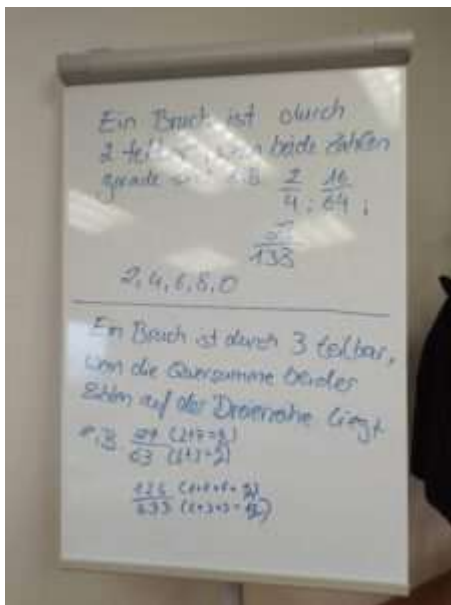 Ein Bruch ist durch
2 teilbar, wenn beide Zahlen
gerade sind z.B. 2/4 ; 16/64 ;
/138
2, 4, 6, 8, 0
Ein Bruch ist durch 3 teilbar,
wenn die Quersumme beider
Zahlen auf der Dreierreihe liegt
z.B. 27 (2+7=9)
63 (6+3=9)